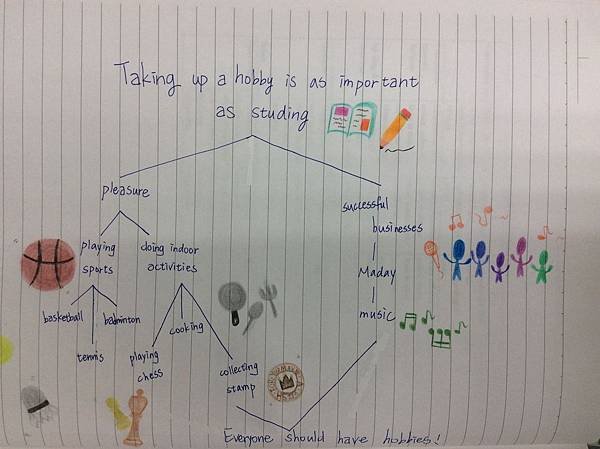 Taking up a hobby is as important
as studing
pleasure
successful
businesses
playing
sports
doing indoor
activities
Maday
music
basketball
badminton
tennis
cooking
playing
chess
collecting
stamp
Everyone should have hobbies!